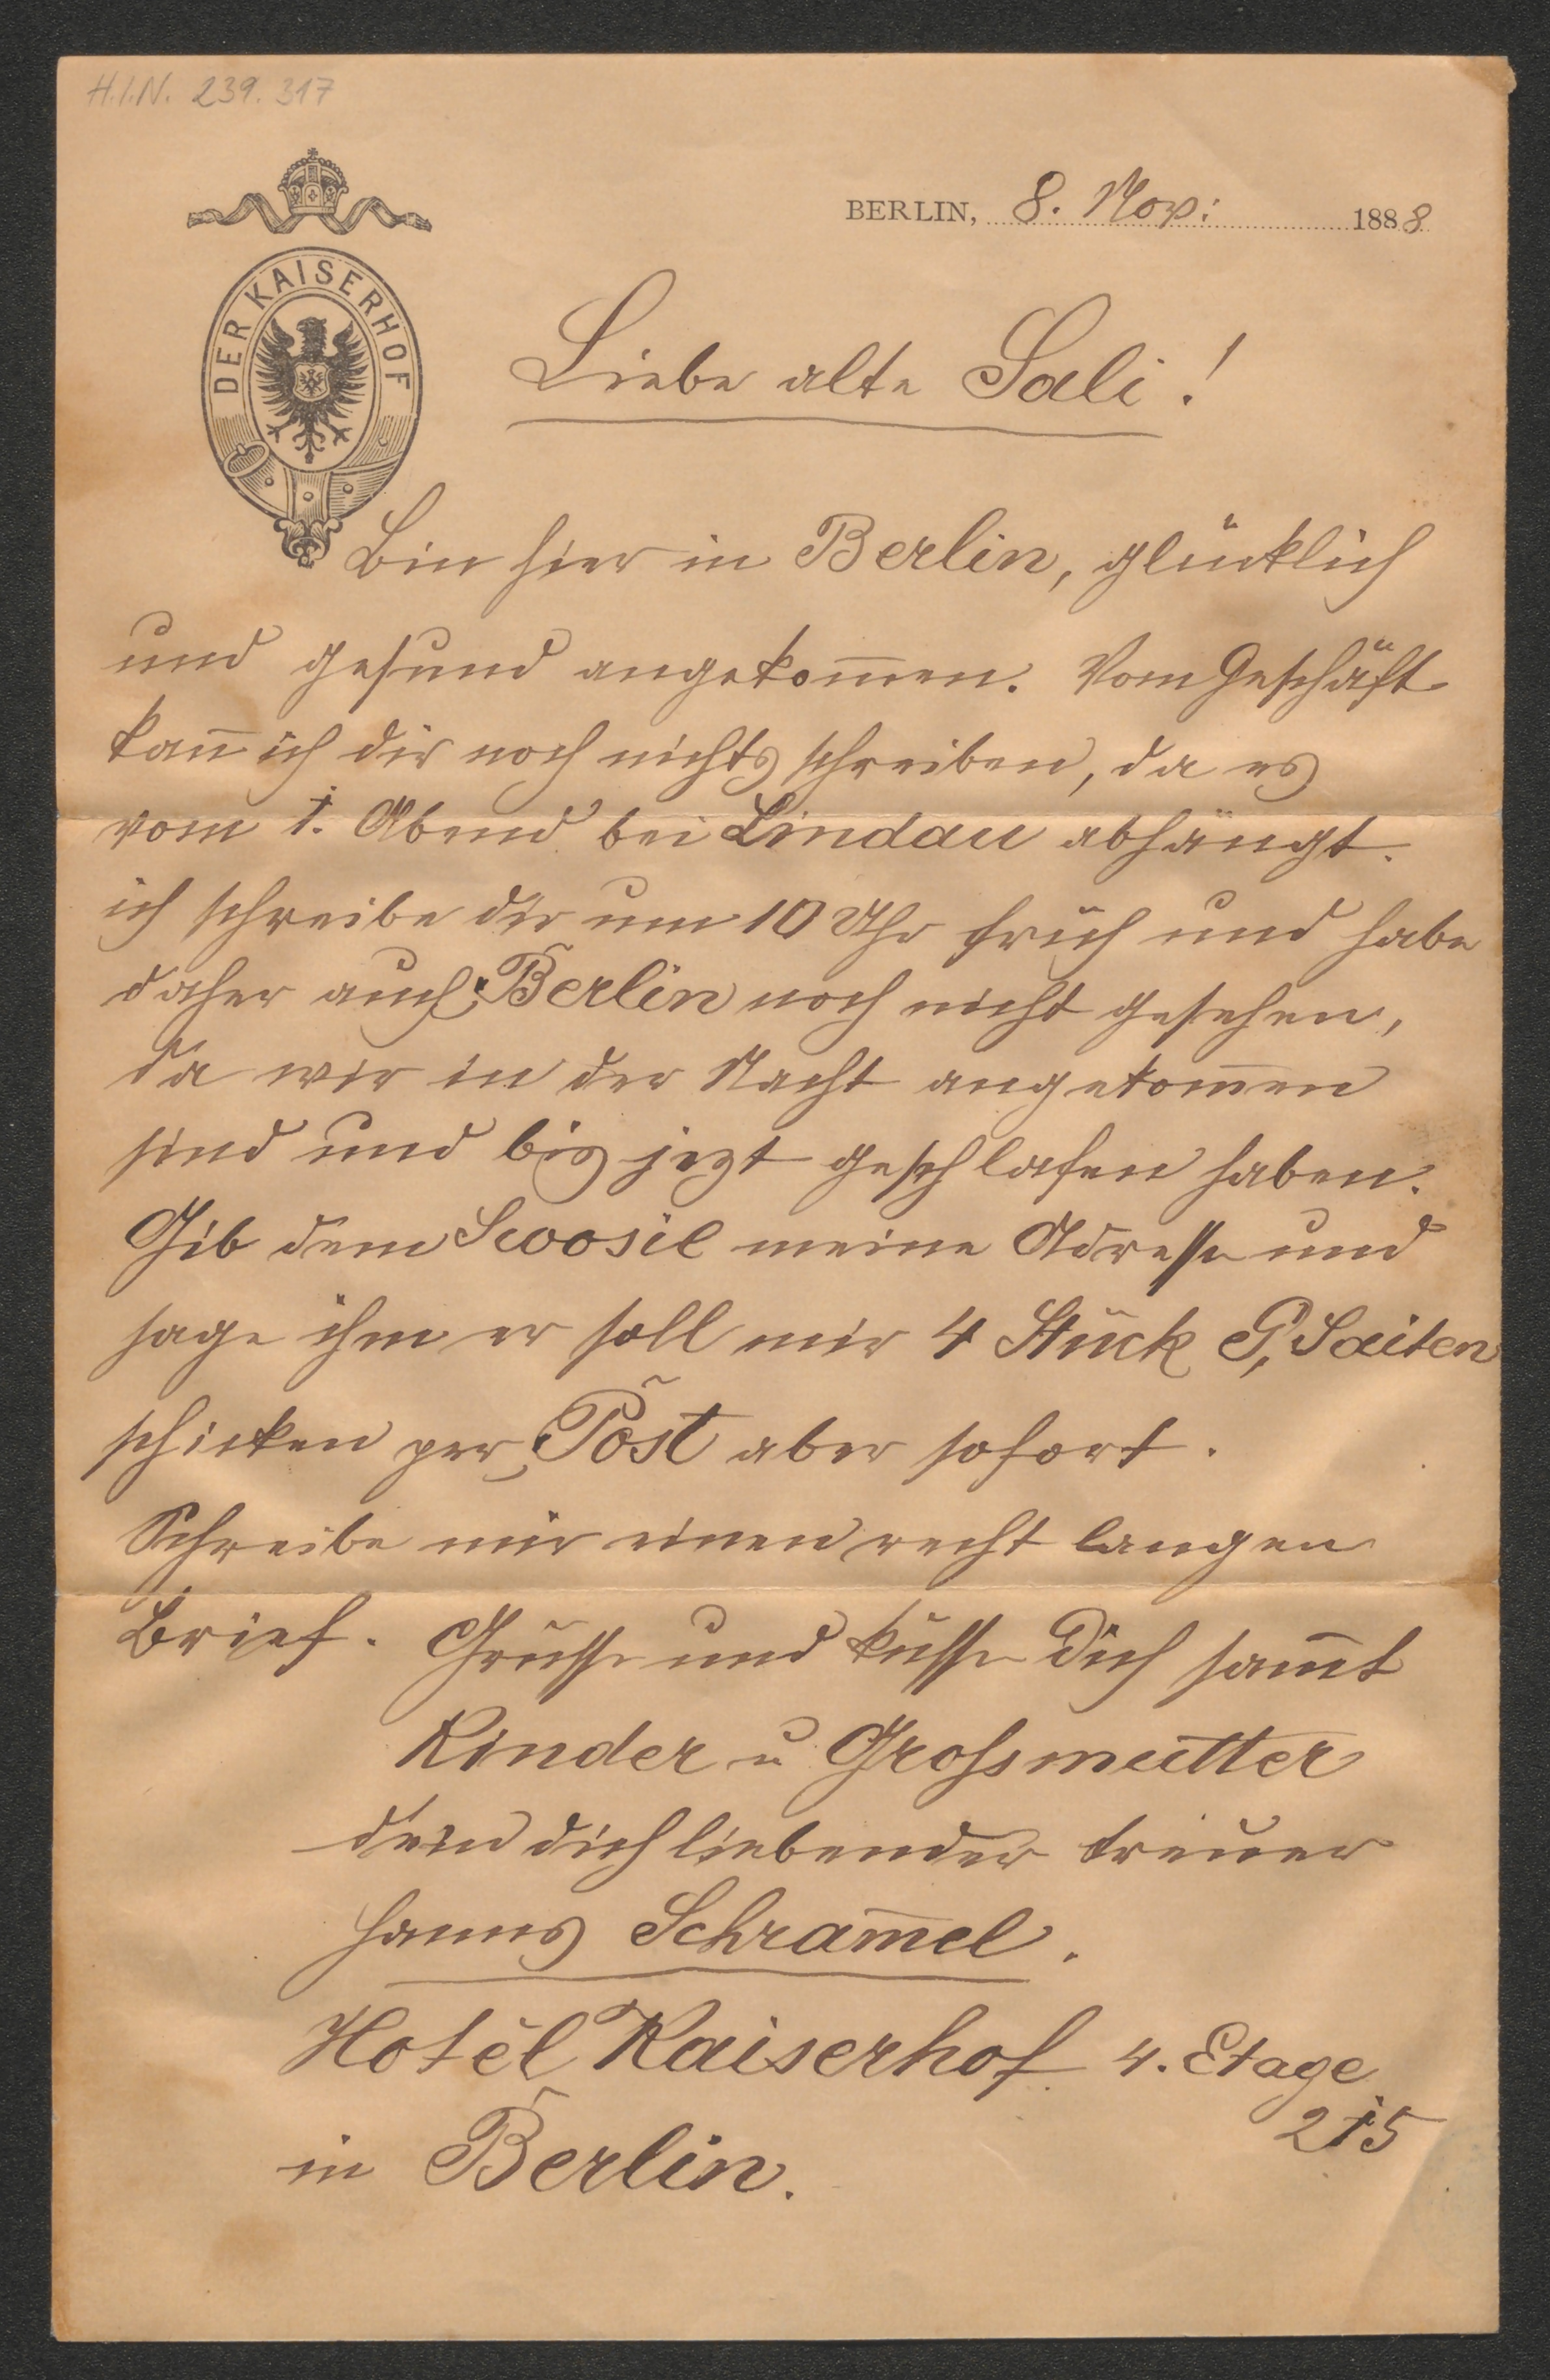 H.I.N. 239.317
BERLIN, 8. Nov: 1888
DER KAISERHOF
Liebe alte Sali!
Bin hier in Berlin, glücklich
und gesund angekom̅en. Vom Geschäft
kan̅ ich dir noch nichts schreiben, da es
vom 1. Abend bei Lindau abhängt.
ich schreibe dir um 10 Uhr früh und habe
daher auch Berlin noch nicht gesehen,
da wir in der Nacht angekom̅en
sind und bis jezt geschlafen haben.
Gib dem Swosil meine Adresse und
sage ihm er soll mir 4 Stück G, Saiten
schicken per Post aber sofort.
Schreibe mir einen recht langen
Brief. Grüsse und küsse Dich sam̅t
Kinder u Grossmutter
dein dich liebender treuer
Hanns Schram̅el.
Hotel Kaiserhof 4. Etage
215
in Berlin.